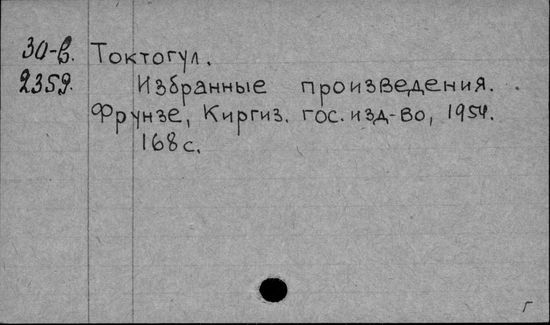 30-в. Токтогул.
2359. Избранные произведения.
Фрунзе, Киргиз. гос. изд-во, 1954.
168 с.
г